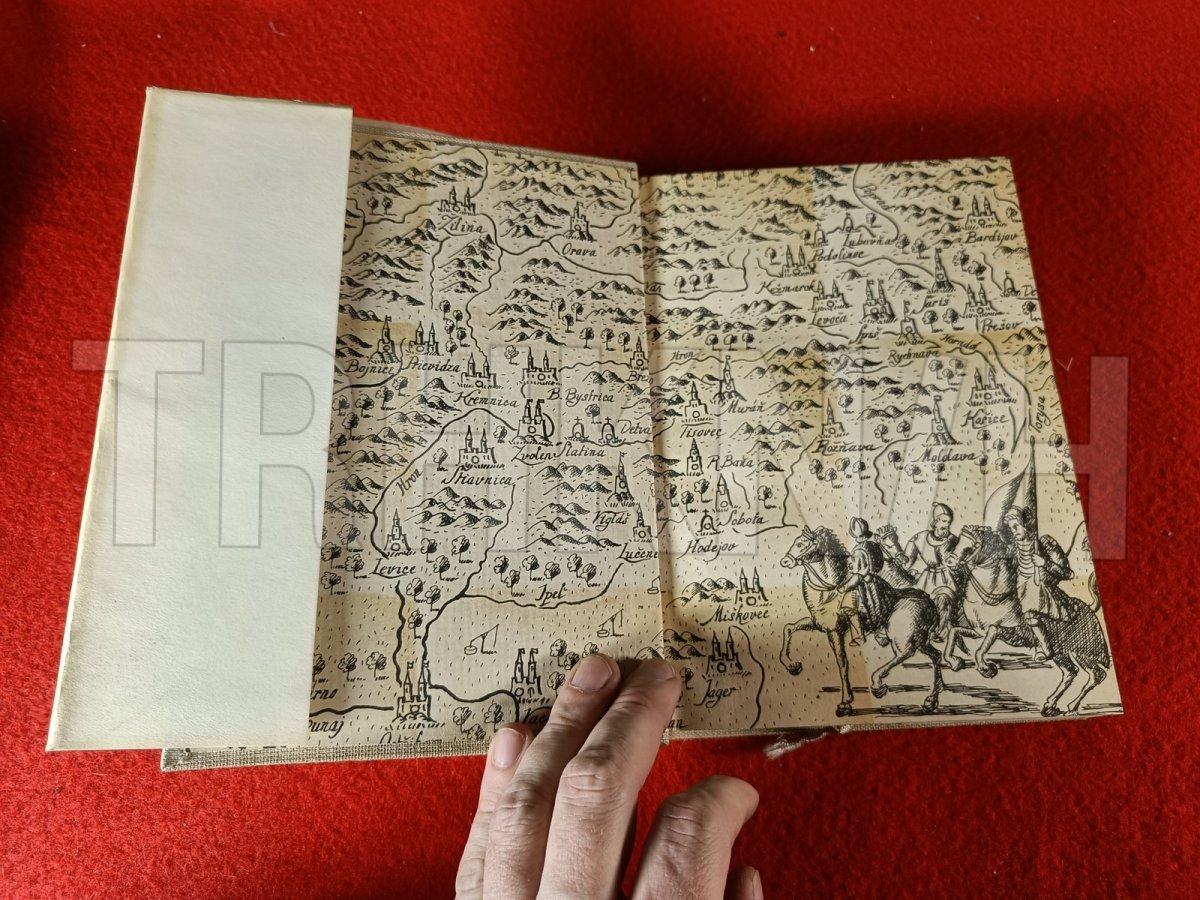 Žilina
Orava
Bojnice
Prievidza
Kremnica
B. Bystrica
Zvolen
Slatina
Detva
Hron
Štiavnica
Vígľaš
Levice
Ipeľ
Dunaj
Ľubovňa
Podolínec
Bardijov
Kežmarok
Levoča
Šariš
Prešov
Hornád
Rychnava
Hron
Muráň
Tisovec
Košice
Torysa
Rožňava
Moldava
R. Baka
Sobota
Hodejov
Miškovec
Jager